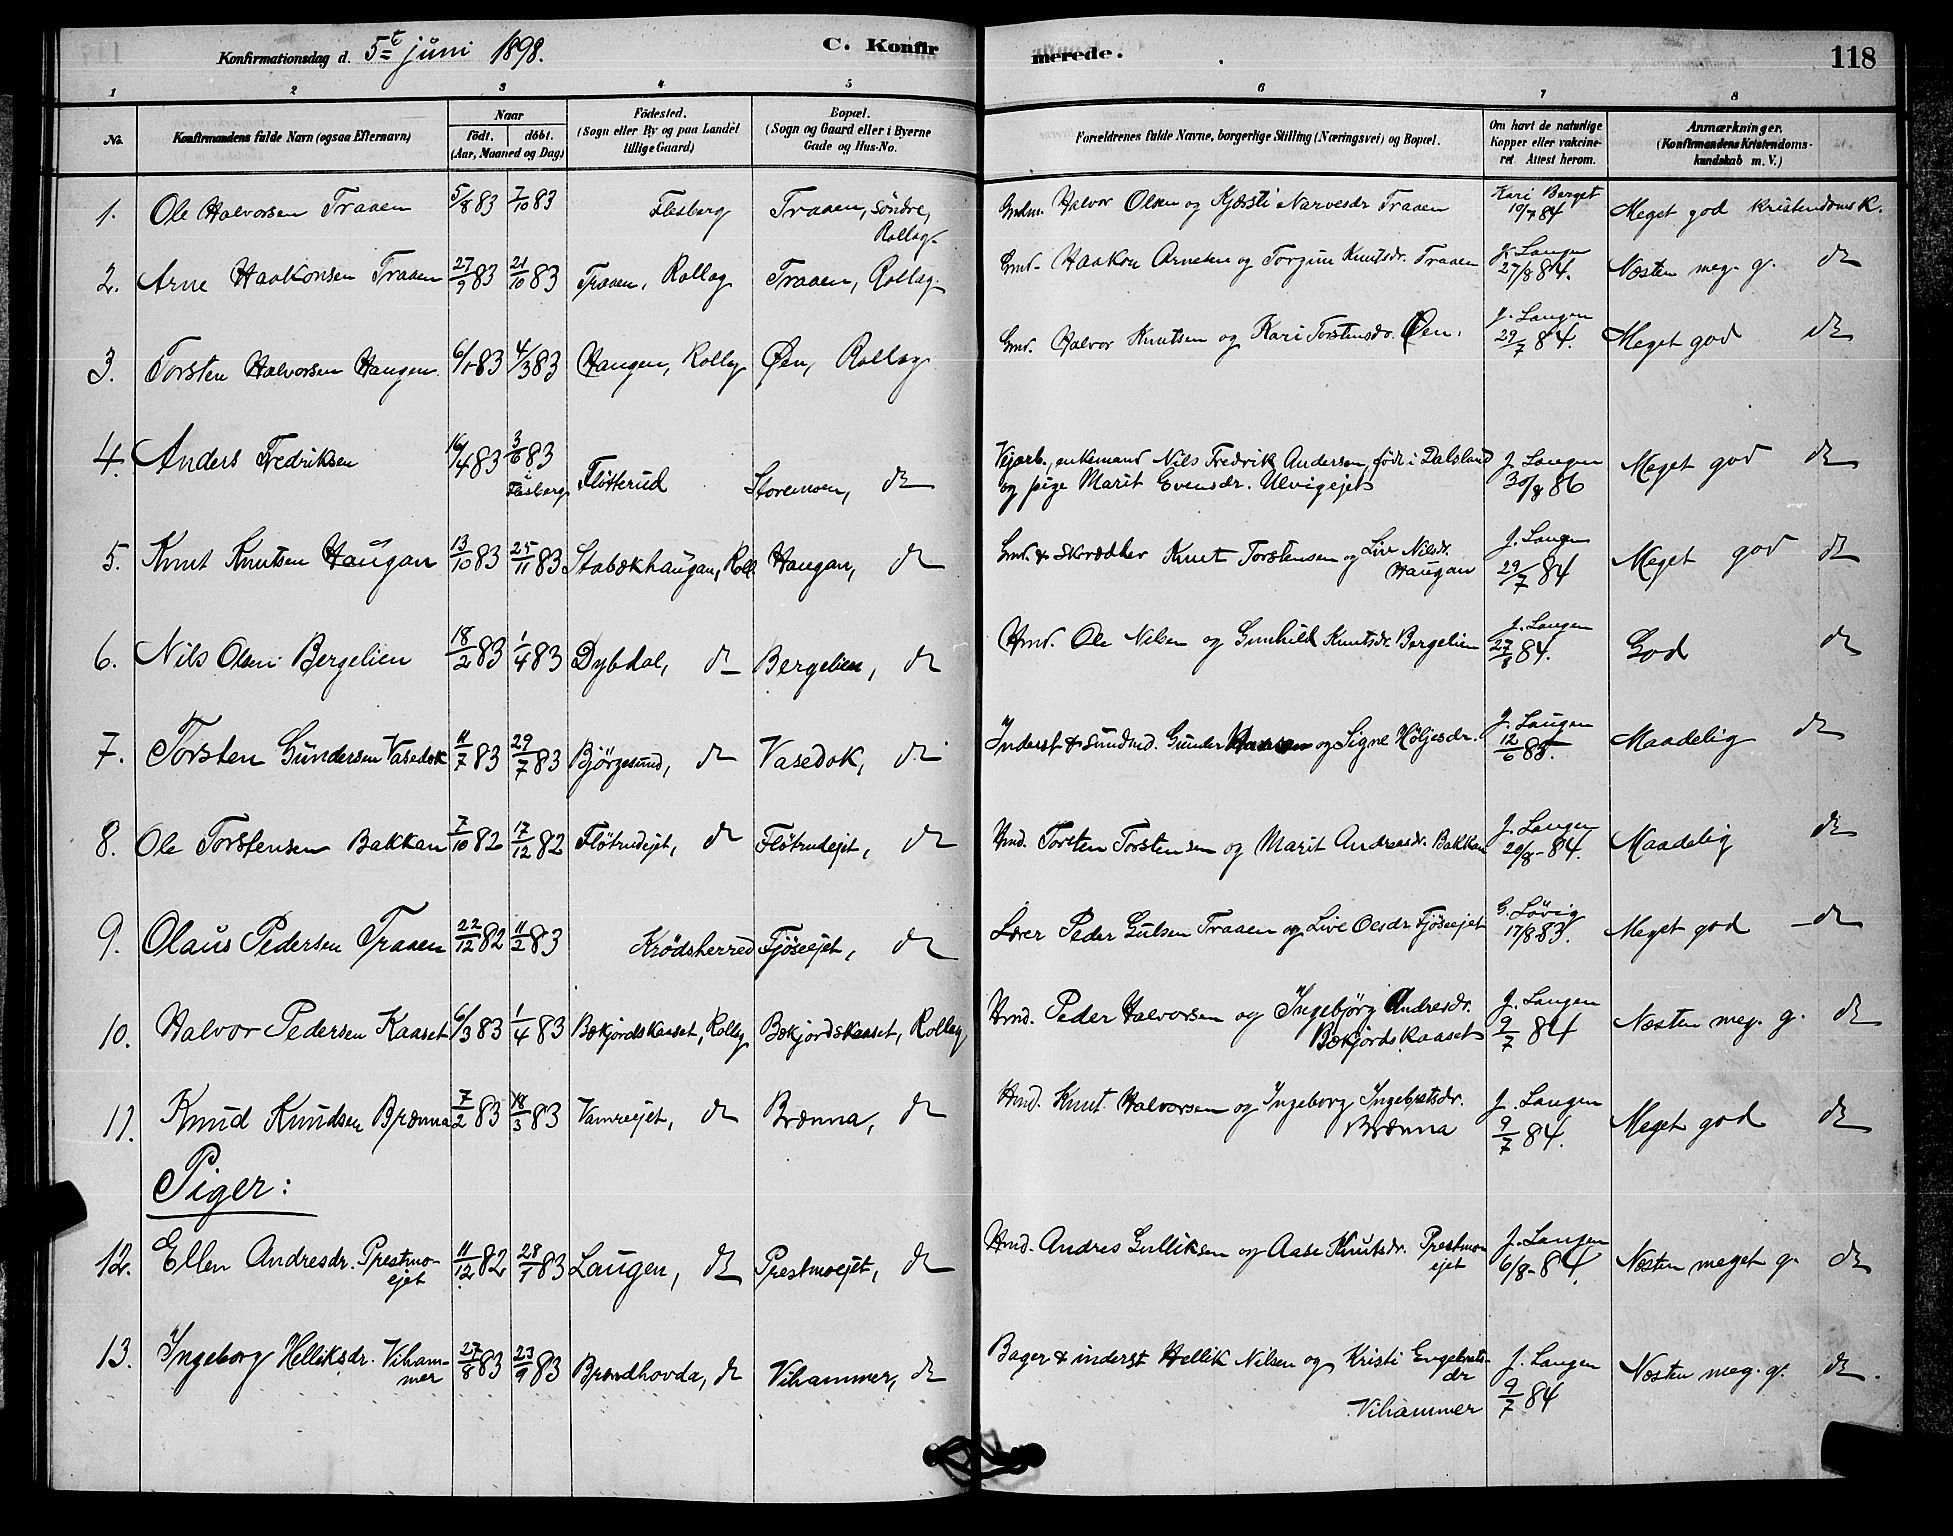 Konfirmationsdag d. 5te juni 1898.
C. Konfir
merede.
118
1 2 3 4 5 6 7 8
No.
Konfirmandens fulde Navn (ogsaa Efternavn)
Naar
födt.
döbt.
(Aar, Maaned og Dag)
Födested.
(Sogn eller By og paa Landet
tillige Gaard)
Bopæl.
(Sogn og Gaard eller i Byerne
Gade og Hus-No.
Forældrenes fulde Navne, borgerlige Stilling (Næringsvei) og Bopæl.
Om havt de naturlige
Kopper eller vakcine-
ret. Attest herom.
Anmærkninger.
(Konfirmandens Kristendoms-
kundskab m. V.)
1. Ole Halvorsen Traaen 5/8 83 7/10 83 Flesberg Traaen, söndre,
Rollag
Halvor Olsen og Kjersti Narvesdr Traaen
Kari Berget
10/7 84
Meget god kristendomsk.
2. Arne Haakonsen Traaen 27/9 83 21/10 83 Traaen, Rollag Traaen, Rollag
Gmd. Haakon Arnesen og Torgun Knutsdr. Traaen
J. Langen
27/8 84.
Næsten meg. g. do
3. Torsten Halvorsen Haugen 6/1 83 4/3 83 Haugen, Rollag Øen, Rollag
Gmd. Halvor Knutsen og Kari Torstensdr. Øen.
J. Langen
29/7 84.
Meget god do
4. Anders Fredriksen 16/4 83 3/6 83
Flesberg
Fløtterud Storemoen, do
Vejarb., enkemand Nils Fredrik Andersen, født i Dalsland
og pige Marit Evensdr. Ulvigejet
J. Langen
30/8 86
Meget god do
5. Knut Knutsen Haugan 13/10 83 25/11 83 Stabækhaugan, Roll. Haugan, do
Gmd. & skrædder Knut Torstensen og Liv Nilsdr.
Haugan
J. Langen
29/7 84
Meget god do
6. Nils Olsen Bergelien 18/2 83 1/4 83 Dybdal, do Bergelien, do
Hmd. Ole Nilsen og Gunhild Knutsdr. Bergelien
J. Langen
27/8 84.
God do
7. Torsten Gundersen Vasedok 11/7 83 29/7 83 Bjørgesund, do Vasedok, do
Inderst & sundmd. Gunder Hansen og Signe Høljesdr.
J. Langen
12/6 85.
Maadelig do
8. Ole Torstensen Bakkan 7/10 82 17/12 82 Fløtrudejet, do Fløtrudejet, do
Hmd. Torsten Torstensen og Marit Andreasdr. Bakkan
J. Langen
20/8 - 84.
Maadelig do
9. Olaus Pedersen Traaen 22/12 82 11/2 83 Krødsherred Fjøsejet, do
Lærer Peder Gulsen Traaen og Live Olsdr Fjøsejet
G. Løvig
17/8 83.
Meget god do
10. Halvor Pedersen Kaaset 6/3 83 1/4 83 Bækjordskaaset, Rollag Bækjordskaaset, Rollag
Hmd. Peder Halvorsen og Ingebjørg Andresdr.
Bækjordskaaset
J. Langen
9/7 84
Næsten meg. g. do
11. Knud Knudsen Brænna 7/2 83 18/3 83 Vamreejet, do Brænna, do
Hmd. Knut Halvorsen og Ingeborg Ingebretsdr.
Brænna
J. Langen
9/7 84.
Meget god do
Piger:
12. Ellen Andresdr. Prestmo-
ejet
11/12 82 28/1 83 Laugen, do Prestmoejet, do
Hmd. Andres Gulliksen og Aase Knutsdr. Prestmo-
ejet
J. Langen
6/8 - 84.
Næsten meget g. do
13. Ingeborg Helliksdr. Viham-
mer
27/8 83 23/9 83 Brandhovda, do Vihammer, do
Bager & inderst Hellik Nilsen og Kristi Engebrets-
dr
Vihammer
J. Langen
9/7 84
Næsten meg. g. do.